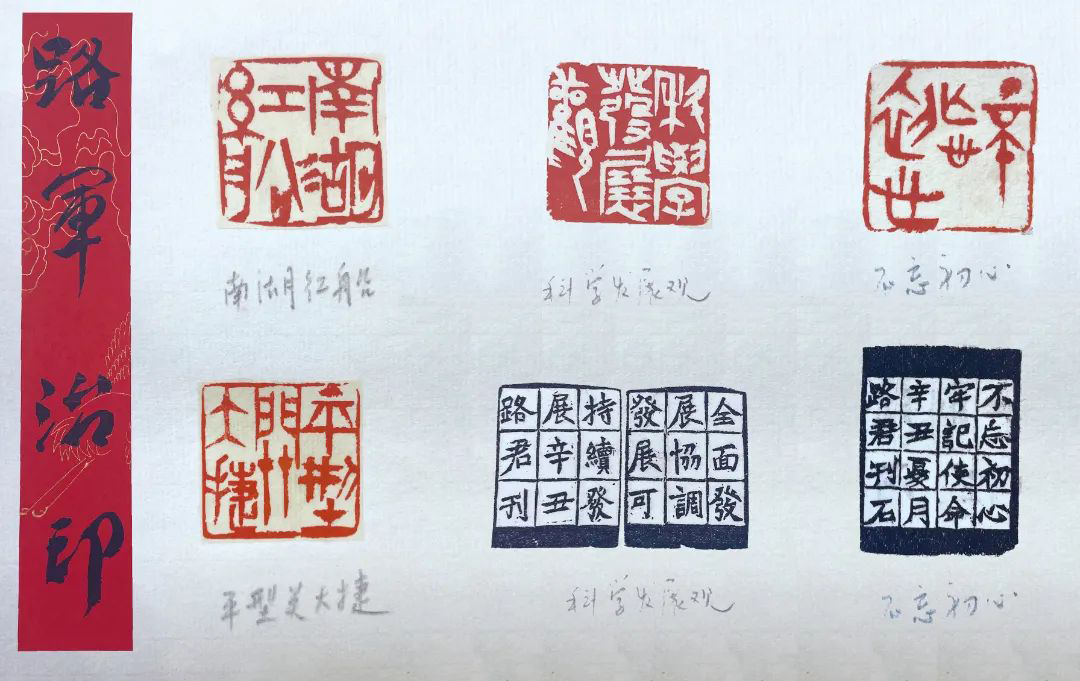 路軍治印
南湖
紅船
南湖红船
科學
發展
觀
科学发展观
不忘初心
平型
關
大捷
平型关大捷
全面發
展協調
發展可
持續發
展辛丑
路君刊
科学发展观
不忘初心
牢記使命
辛丑夏月
路君刊石
不忘初心